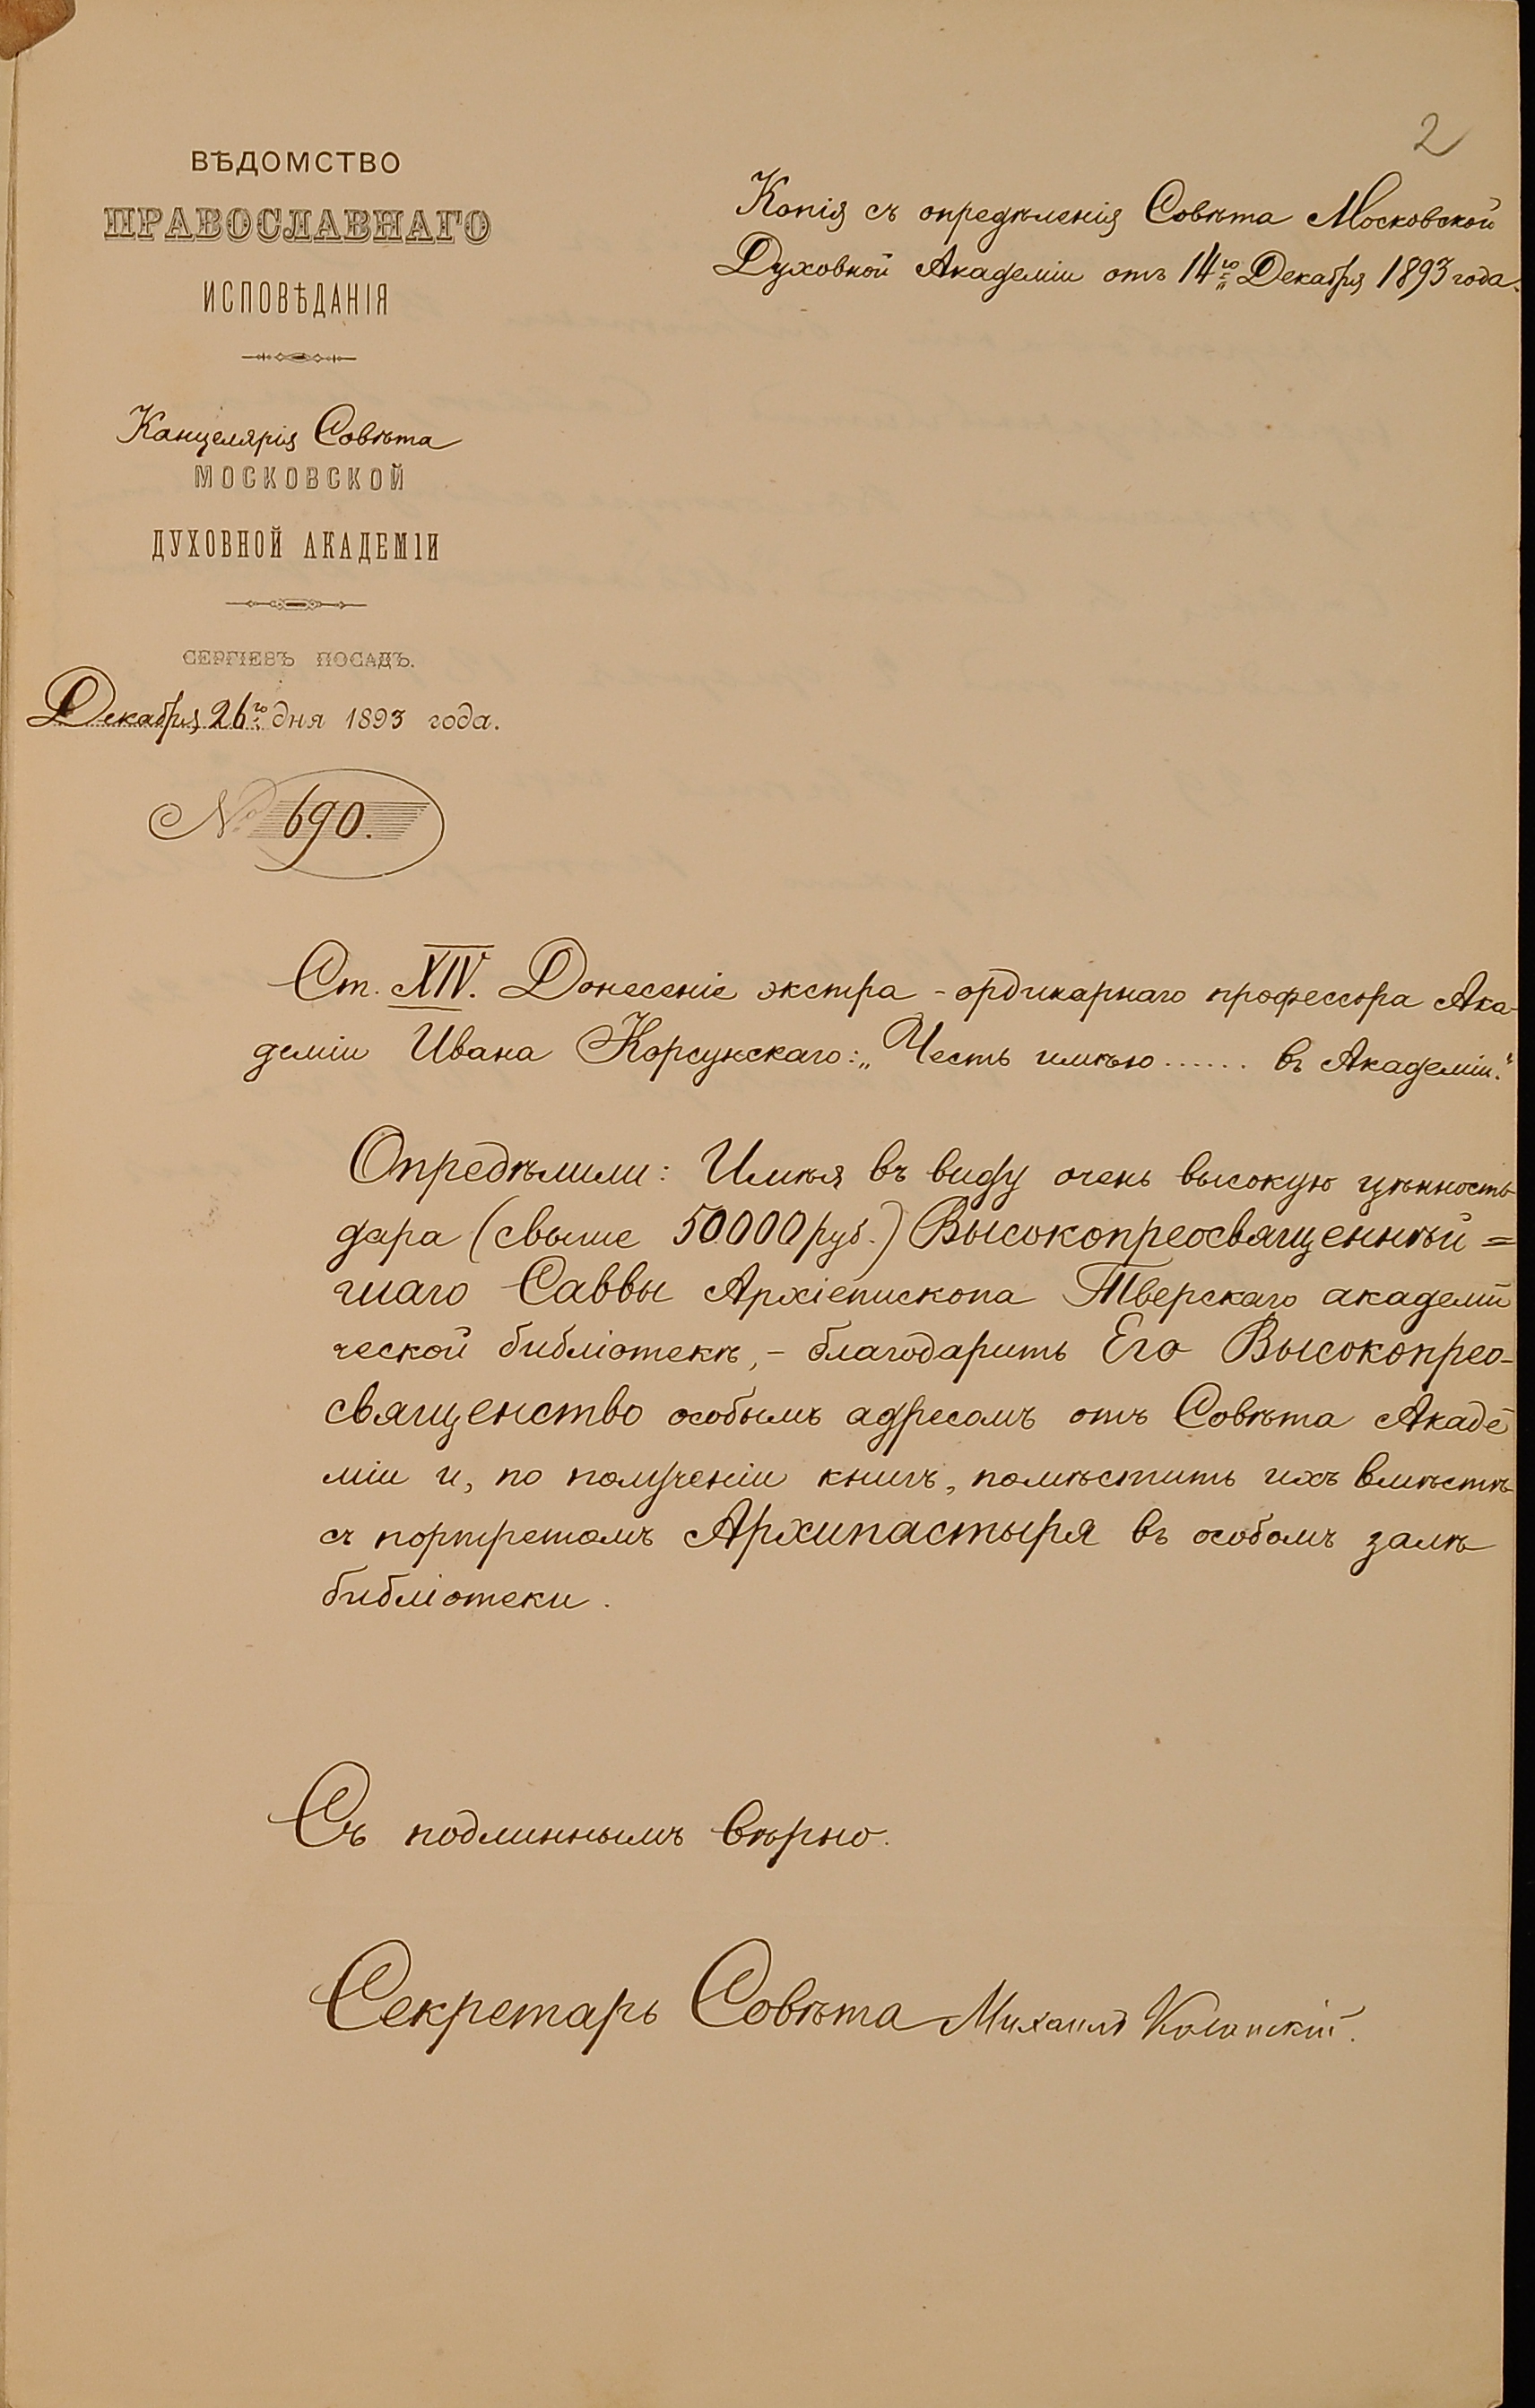 2
ВѢДОМСТВО
ПРАВОСЛАВНАГО
ИСПОВѢДАНІЯ
Канцелярія Совѣта
МОСКОВСКОЙ
ДУХОВНОЙ АКАДЕМІИ
СЕРГІЕВЪ ПОСАДЪ.
Декабря 26го дня 1893 года.
№ 690.
Копія съ опредѣленія Совѣта Московской
Духовной Академіи отъ 14го Декабря 1893 года.
Ст. XIV. Донесеніе экстра-ординарнаго профессора Ака-
деміи Ивана Корсунскаго: „Честь имѣю ...... въ Академіи.“
Опредѣлили: Имѣя въ виду очень высокую цѣнность
дара (свыше 50.000 руб.) Высокопреосвященнѣй=
шаго Саввы Архіепископа Тверскаго академи
ческой библіотекѣ, – благодарить Его Высокопрео-
священство особымъ адресомъ отъ Совѣта Акаде
міи и, по полученіи книгъ, помѣстить ихъ вмѣстѣ
съ портретомъ Архипастыря въ особомъ залѣ
библіотеки.
Съ подлиннымъ вѣрно.
Секретарь Совѣта Михаилъ